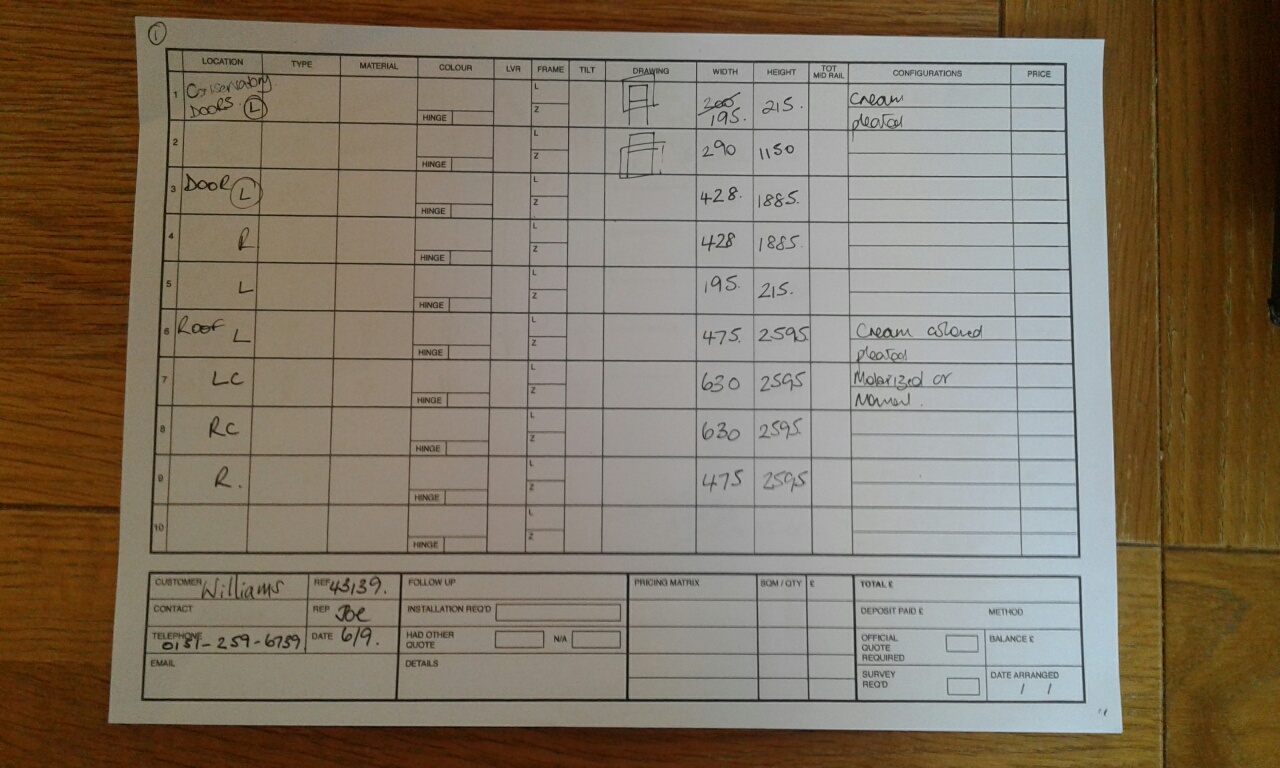 1
LOCATION TYPE MATERIAL COLOUR LVR FRAME TILT DRAWING WIDTH HEIGHT TOT MID RAIL CONFIGURATIONS PRICE
1 Conservatory DOORS L HINGE L Z 305 195. 215. Cream pleated
2 HINGE L Z 290 1150
3 DOOR L HINGE L Z 428. 1885.
4 R HINGE L Z 428 1885.
5 L HINGE L Z 195. 215.
6 ROOF L HINGE L Z 475. 2595 Cream colored pleated
7 LC HINGE L Z 630 2595 Motorized or Manual.
8 RC HINGE L Z 630 2595
9 R. HINGE L Z 475 2595
10 HINGE L Z
CUSTOMER Williams REF 43139. FOLLOW UP PRICING MATRIX SQM / QTY £ TOTAL £
CONTACT REP Joe INSTALLATION REQ'D DEPOSIT PAID £ METHOD
TELEPHONE 0151-259-6759 DATE 6/9. HAD OTHER QUOTE N/A OFFICIAL QUOTE REQUIRED BALANCE £
EMAIL DETAILS SURVEY REQ'D DATE ARRANGED / /